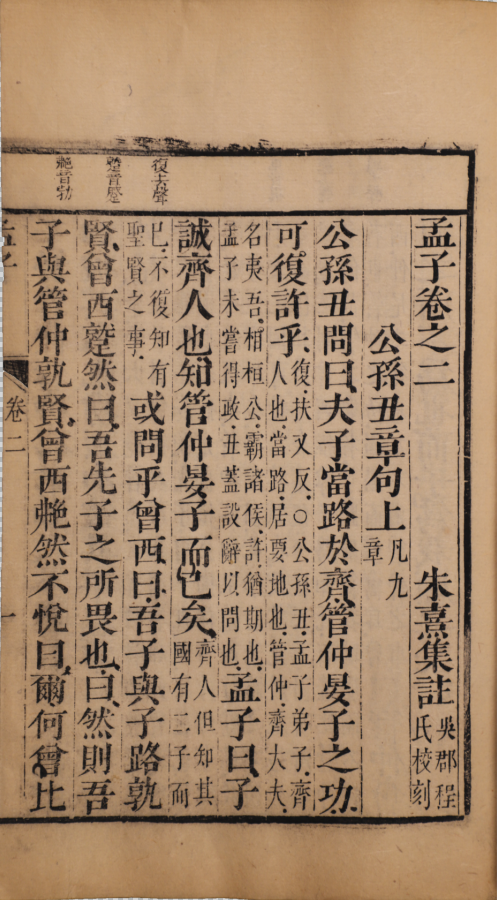 復去聲
蹵音蹙
艴音勃
孟子卷之二 朱熹集註 吳郡程
氏校刻
公孫丑章句上 凡九
章
公孫丑問曰夫子當路於齊管仲晏子之功
可復許乎 復扶又反○公孫丑孟子弟子齊
人也當路居要地也管仲齊大夫
名夷吾相桓公霸諸侯許猶期也
孟子未嘗得政丑蓋設辭以問也 孟子曰子
誠齊人也知管仲晏子而已矣 齊人但知其
國有二子而
已不復知有
聖賢之事 或問乎曾西曰吾子與子路孰
賢曾西蹵然曰吾先子之所畏也曰然則吾
子與管仲孰賢曾西艴然不悅曰爾何曾比
孟子 卷二 一